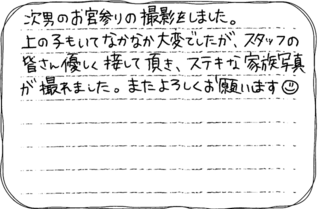 次男のお宮参りの撮影をしました。
上の子もいてなかなか大変でしたが、スタッフの
皆さん優しく接して頂き、ステキな家族写真
が撮れました。またよろしくお願います☺